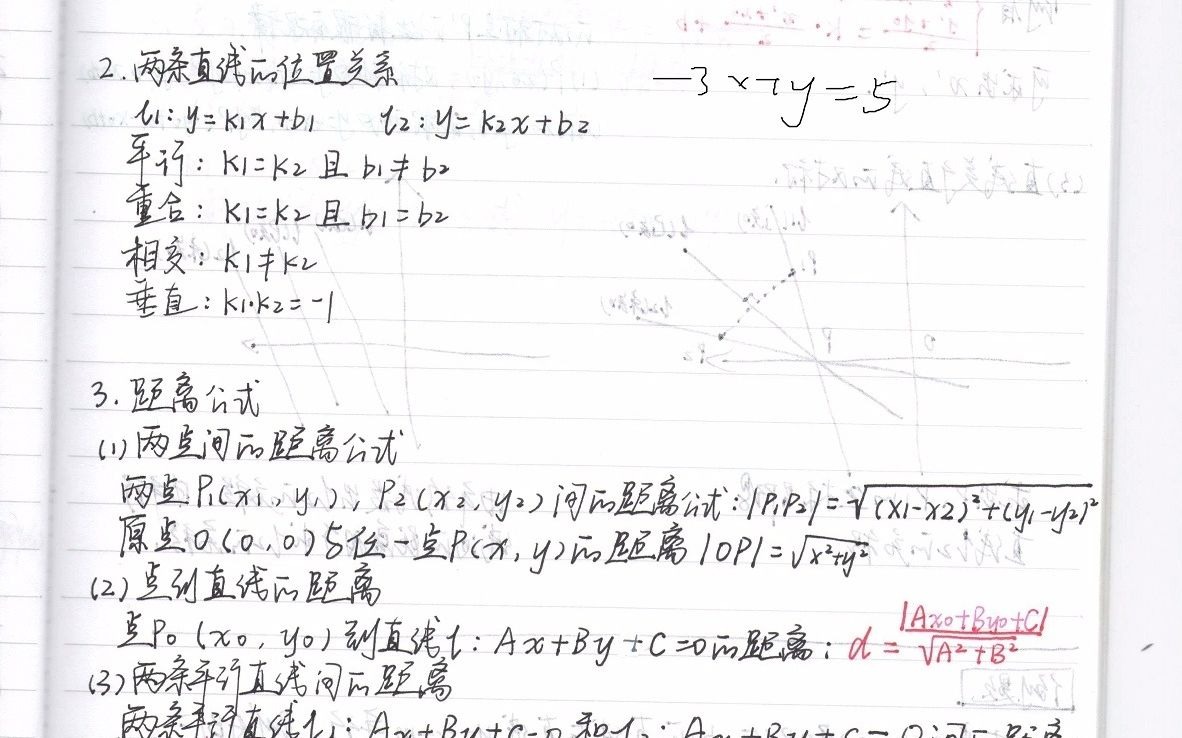 2. 两条直线的位置关系
-3x+y=5
l1: y=k1x+b1  l2: y=k2x+b2
平行: k1=k2 且 b1≠b2
重合: k1=k2 且 b1=b2
相交: k1≠k2
垂直: k1·k2=-1
3. 距离公式
(1) 两点间的距离公式
两点 P1(x1, y1), P2(x2, y2) 间的距离公式: |P1P2|=√(x1-x2)²+(y1-y2)²
原点O(0,0)与任一点P(x,y)的距离|OP|=√x²+y²
(2) 点到直线的距离
点P0(x0, y0)到直线l: Ax+By+C=0的距离: d=|Ax0+By0+C|/√A²+B²
(3) 两条平行直线间的距离
两条平行直线l1: Ax+By+C=0 和 l2: Ax+By+C=0间的距离